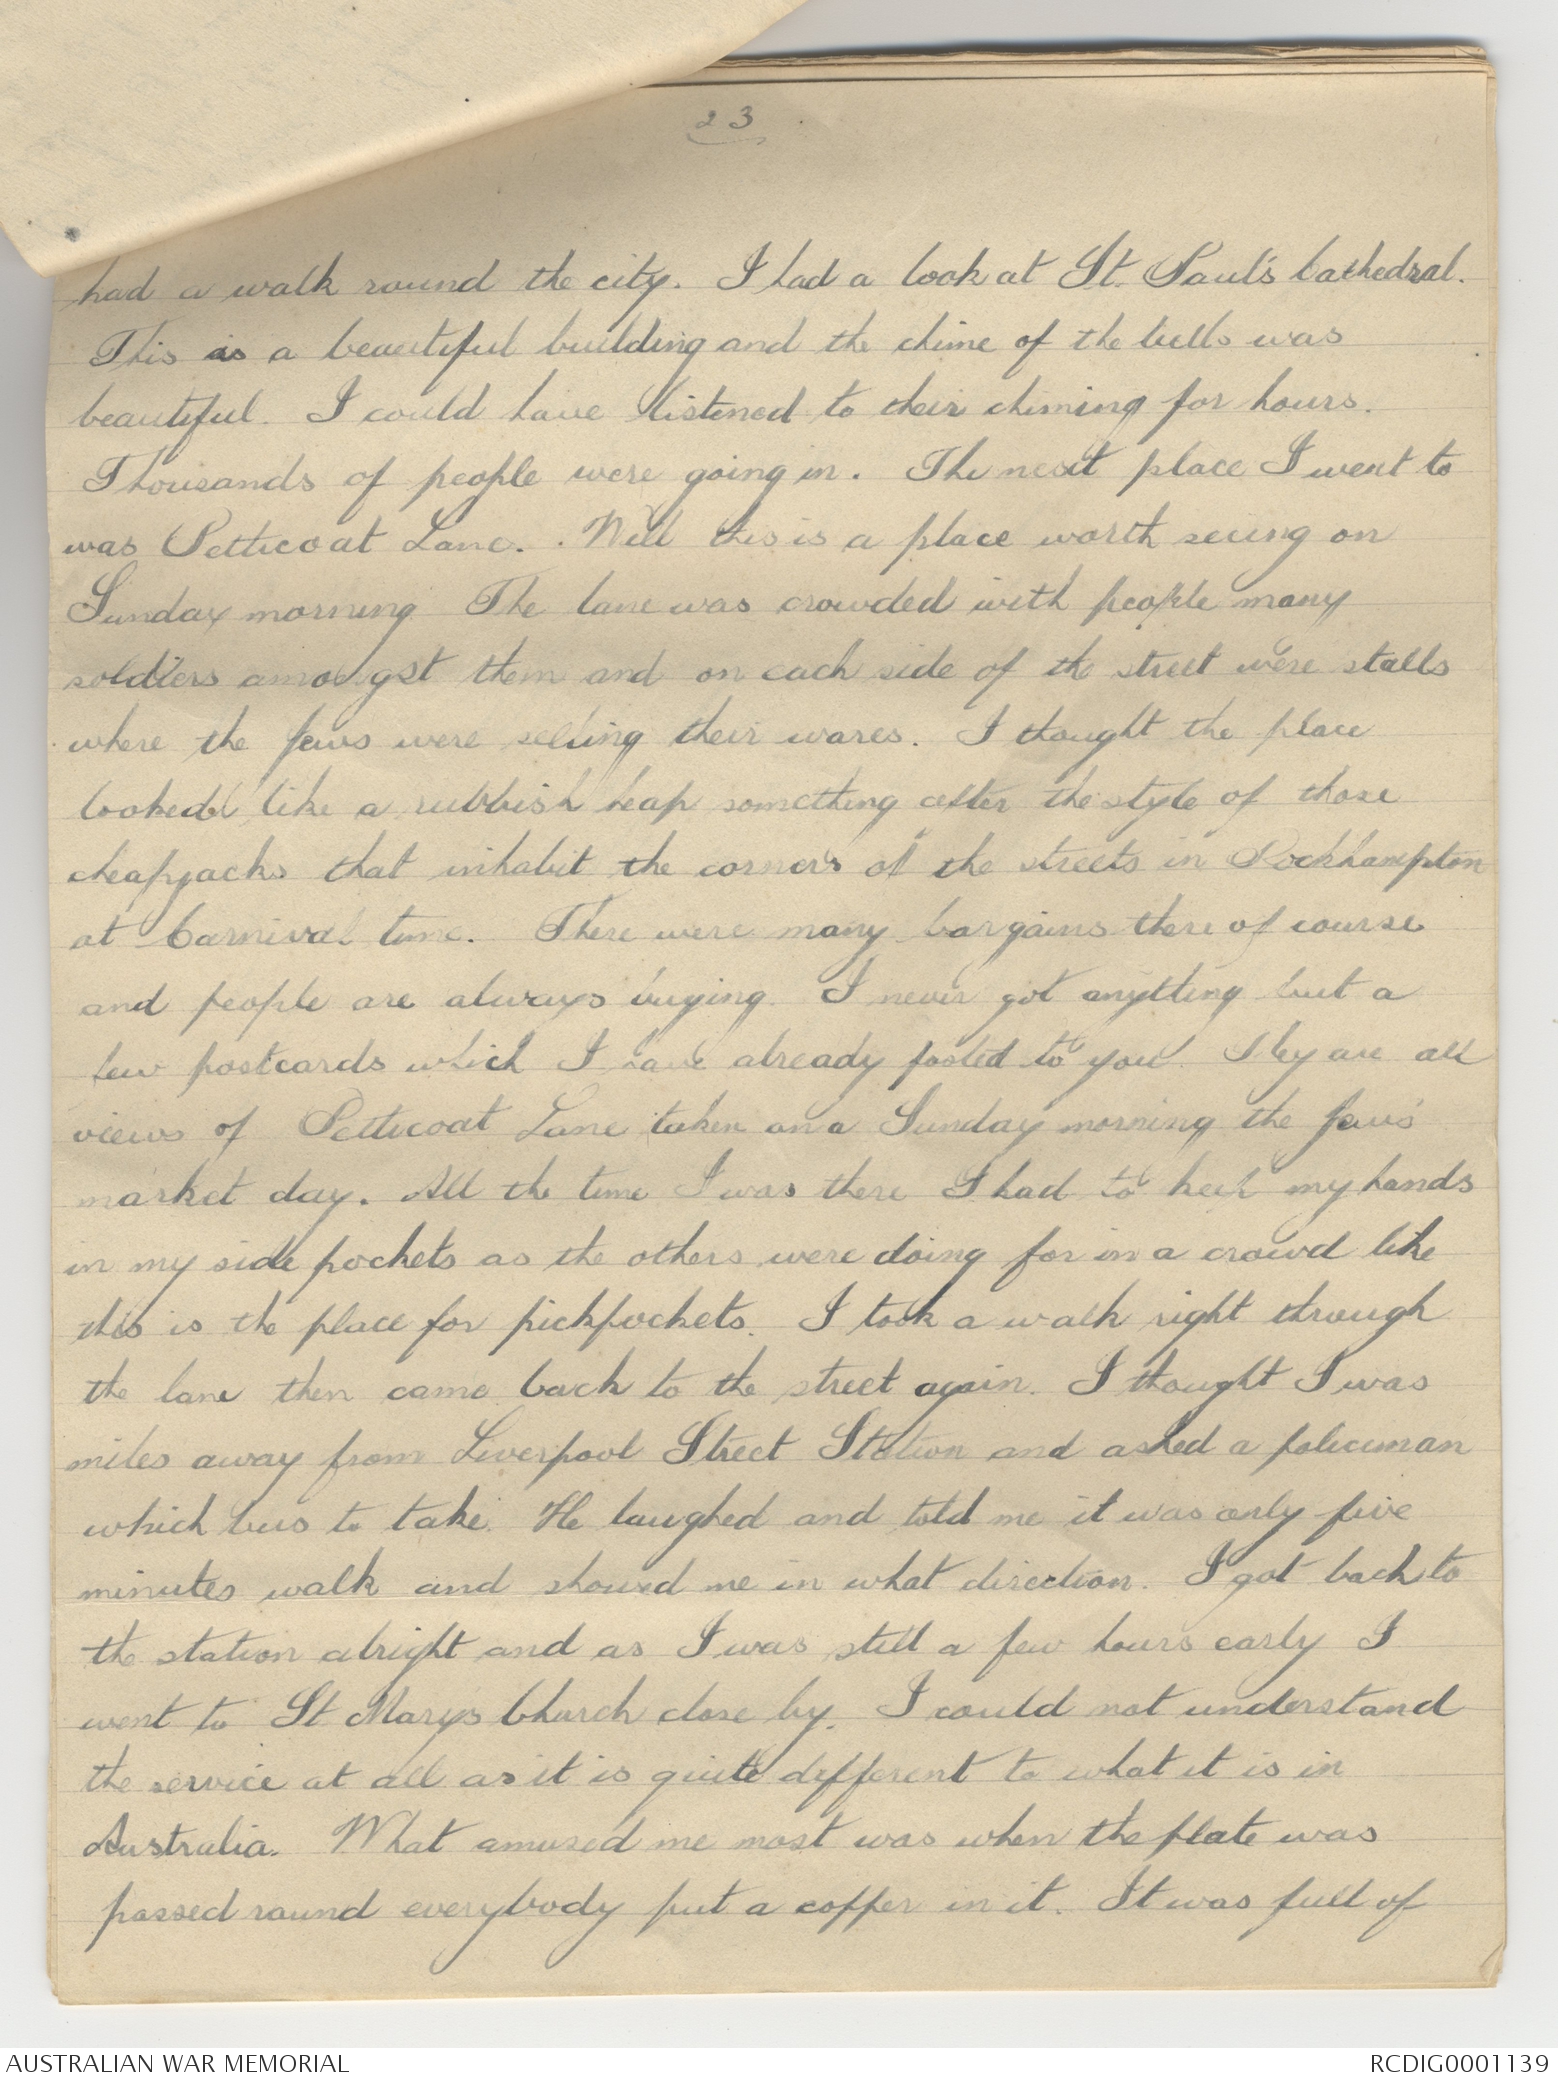 23
had a walk round the city. I had a look at St. Paul's Cathedral.
This is a beautiful building and the chime of the bells was
beautiful. I could have listened to their chiming for hours.
Thousands of people were going in. The next place I went to
was Petticoat Lane. Well this is a place worth seeing on
Sunday morning The lane was crowded with people many
soldiers amongst them and on each side of the street were stalls
where the Jews were selling their wares. I thought the place
looked like a rubbish heap something after the style of those
cheapjacks that inhabit the corners of the streets in Rockhampton
at Carnival time. There were many bargains there of course
and people are always buying. I never got anything but a
few postcards which I have already posted to you. They are all
views of Petticoat Lane taken on a Sunday morning the Jews'
market day. All the time I was there I had to keep my hands
in my side pockets as the others were doing for in a crowd like
this is the place for pickpockets. I took a walk right through
the lane then came back to the street again. I thought I was
miles away from Liverpool Street Station and asked a policeman
which bus to take. He laughed and told me it was only five
minutes walk and showed me in what direction. I got back to
the station alright and as I was still a few hours early I
went to St Marys Church close by. I could not understand
the service at all as it is quite different to what it is in
Australia. What amused me most was when the plate was
passed round everybody put a copper in it. It was full of
AUSTRALIAN WAR MEMORIAL
RCDIG0001139